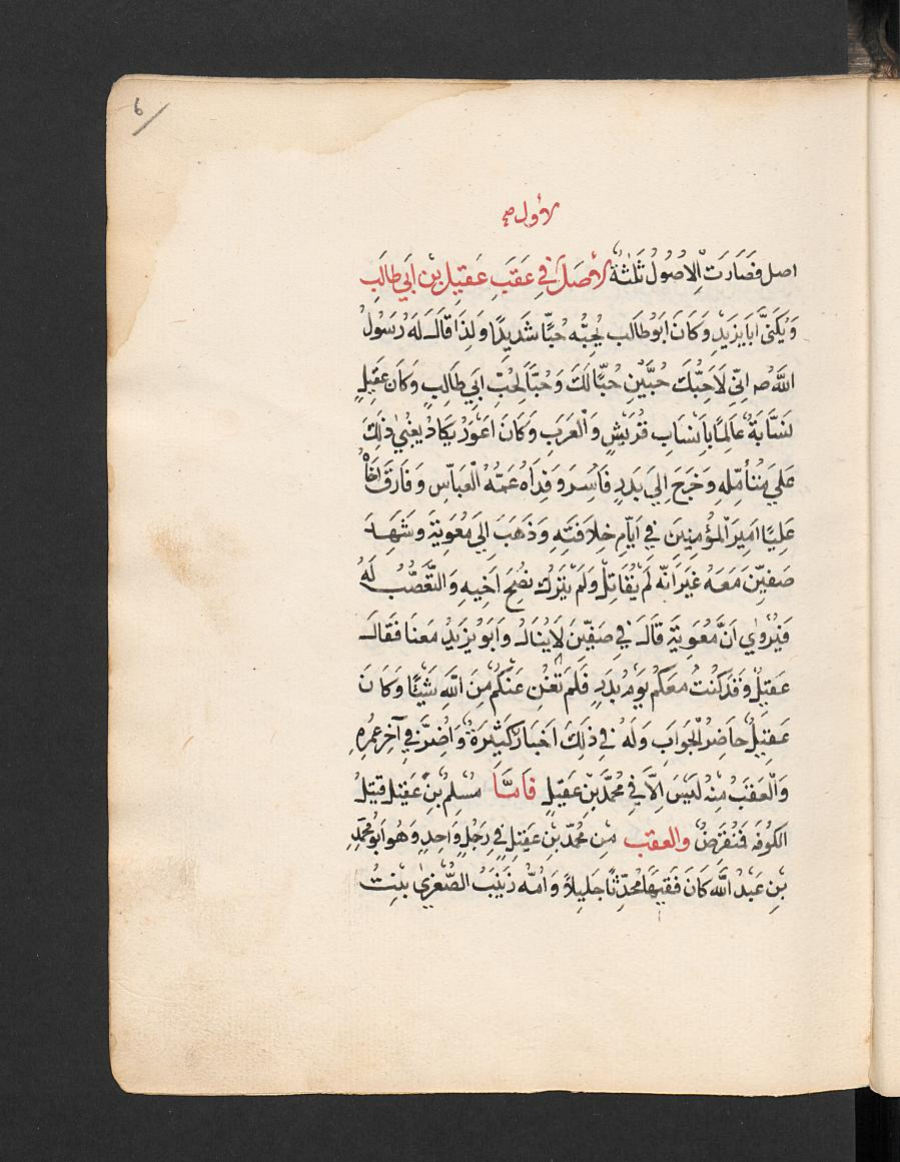 6
الأول صح
اصل فَصَارَت الاصُولُ ثَلثةُ الأصَل في عَقَبِ عَقِيلِ بْنِ اَبي طالِبِ
وَيُكَنىَّ اَبَا يَزيدِ وَكَانَ ابُو طَالب يُحِبُّه حُبًّا شَديدًا وَلِذَا قَالَ لَهُ رَسُولُ
اللهُ صه اِنّي لَاَحِبُّكَ حُبَّيْنِ حُبًّا لَكَ وَحُبًّا لِحُبِّ ابَي طَالِبٍ وَكَان عَقِيلٍ
نسَّابَةُ عَالِمًا باَنسَابِ قُرَيْشٍ وَالْعَرَبِ وَكَانَ اعَوَر يَكَادُ يغبي ذلِكَ
عَلي مُتأمِّلهِ وَخَرَجَ اِلي بَدرٍ فاَسِرَ وَفِدَاهُ عَمّهُ الْعبَاّس وَفارَقَ اخاَُ
عَلِيًا امِيرَ المؤُمنِينَ في ايّامِ خِلاَفتهِ وَذهَبَ الِي مُعوية وشَهِدَ
صَفيِّنَ مَعَهُ غَيَرَ انّه لَم يُقَاتِلْ وَلَم يَترُك نُصْحَ اَخِيهِ وَالتَّعَصُّبُ لَهُ
فَيُروٰي اَنَّ مُعَوِيَةَ قالَ في صَفِيّنَ لاَ يُنالُ وَابَو يَزيدُ مَعنَا فَقالَ
عَقيلُ وَقَد كُنتُ مَعَكُم يَومَ بَدرٍ فَلَم تُغنِ عَنكُم مِنَ اللَّهِ شَيْئًا وَكَانَ
عَقِيَلُ حاَضرُ الجوَابِ وَلَهُ في ذلكِ اَخبَارُ كَثِيرَةُ وَاُضِرَّ في آخرِ عمُرهِ
وَالْعَقَبُ مِنهُ لَيسَ اِلاّ في محُمَّد بنِ عَقِيلٍ فاَمَّا مُسْلِم بْنِ عَقيل قتيلُ
الكوُفَه فَنُقرِضُ والعقب مِن محُمّد بْنِ عَقيلِ في رَجُلٍ وَاحِدٍ وَهُو اَبوُ محُمَّد
بْنِ عَبْدُ اللّه كَانَ فَقيهًا مُحدِّثًا جَليلاً وَامّه زَيْنبُ الصُّغريٰ بنِتُ